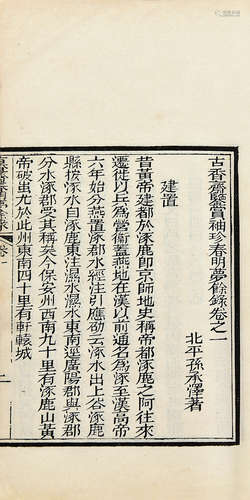 古香齋鑒賞袖珍春明夢餘錄卷之一
北平孫承澤著
建置
昔黃帝建都於涿鹿即京師地史稱帝都涿鹿之阿往來
遷徙以兵爲營衞蓋燕地在漢以前通名爲涿至漢高帝
六年始分燕置涿郡水經注引應劭云涿水出上谷涿鹿
縣按涿水自涿鹿東注濕水濕水東南逕廣陽郡與涿郡
分水涿受其稱矣今保安州西南九十里有涿鹿山黃
帝破蚩尤於此州東南四十里有軒轅城